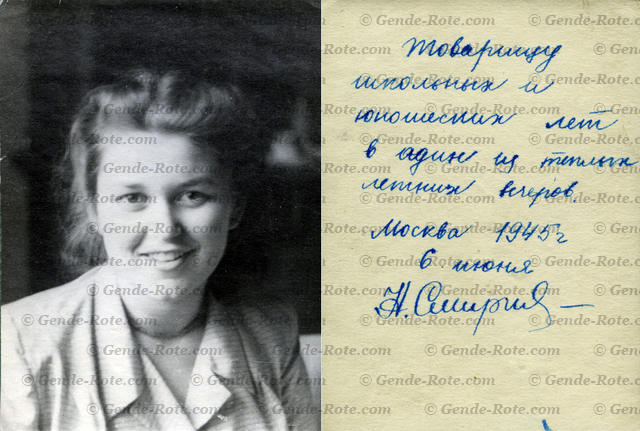 Товарищу
школьных и
юношеских лет
в один из теплых
летних вечеров.
Москва 1945 г
6 июня
Н.
© Gende-Rote.com